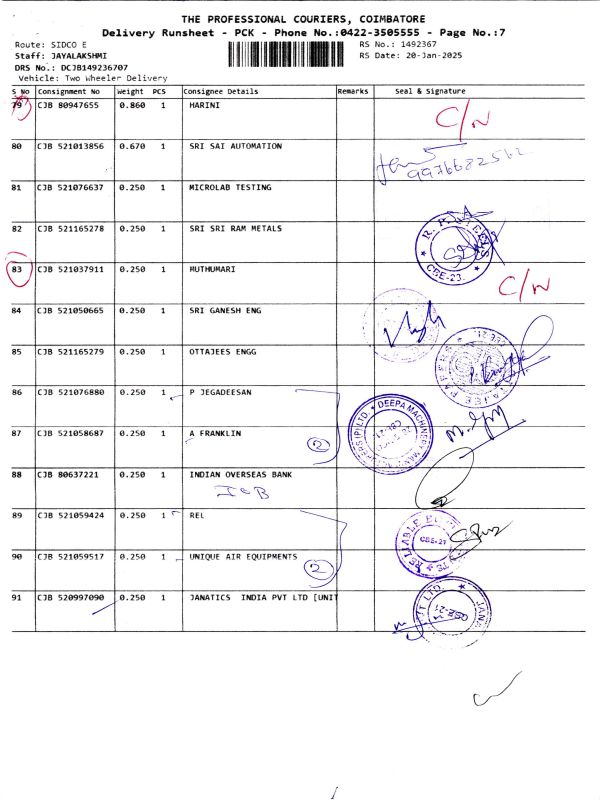 THE PROFESSIONAL COURIERS, COIMBATORE
Delivery Runsheet - PCK - Phone No.:0422-3505555 - Page No.:7
Route: SIDCO E RS No.: 1492367
Staff: JAYALAKSHMI RS Date: 20-Jan-2025
DRS No.: DCJB149236707
Vehicle: Two Wheeler Delivery
S No Consignment No Weight PCS Consignee Details Remarks Seal & Signature
79 CJB 80947655 0.860 1 HARINI C/N
80 CJB 521013856 0.670 1 SRI SAI AUTOMATION
81 CJB 521076637 0.250 1 MICROLAB TESTING
82 CJB 521165278 0.250 1 SRI SRI RAM METALS CBE-23.
83 CJB 521037911 0.250 1 MUTHUMARI C/N
84 CJB 521050665 0.250 1 SRI GANESH ENG
85 CJB 521165279 0.250 1 OTTAJEES ENGG
86 CJB 521076880 0.250 1 P JEGADEESAN
87 CJB 521058687 0.250 1 A FRANKLIN 2 DEEPA MACHINERY
88 CJB 80637221 0.250 1 INDIAN OVERSEAS BANK
IOB
89 CJB 521059424 0.250 1 REL RELIABLE CBE-21
90 CJB 521059517 0.250 1 UNIQUE AIR EQUIPMENTS 2
91 CJB 520997090 0.250 1 JANATICS INDIA PVT LTD [UNIT